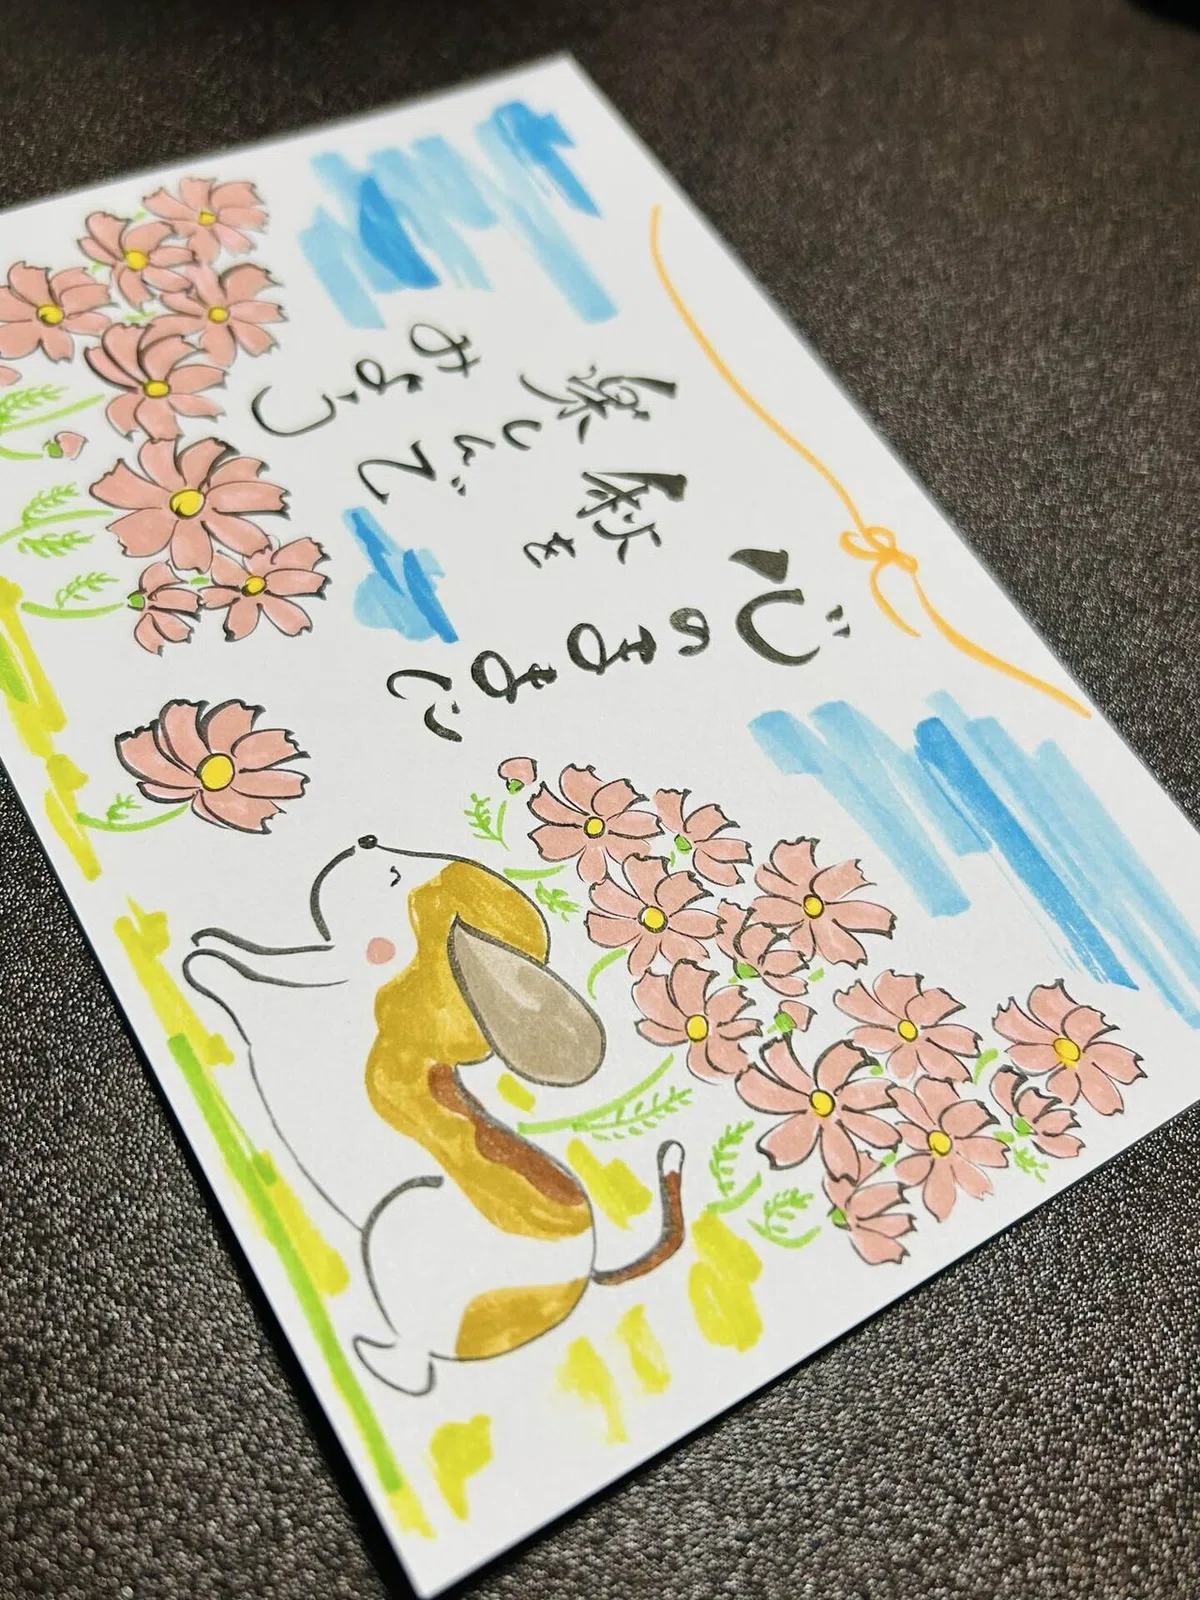 心のままに
秋を
楽しんで
みよう